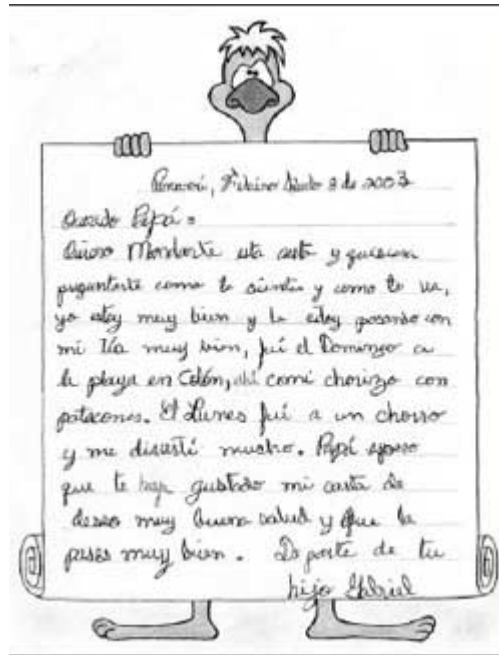 Panamá, Febrero 8 de 2003
Querido Papá:
Quiero Mandarte esta carta y quisiera
preguntarte como te sientes y como te va,
yo estoy muy bien y la estoy pasando con
mi tía muy bien, fuí el Domingo a
la playa en Colón, ahí comí chorizo con
patacones. El Lunes fuí a un chorro
y me divertí mucho. Papá espero
que te haya gustado mi carta te
deseo muy buena salud y que la
pases muy bien. De parte de tu
hijo Gabriel